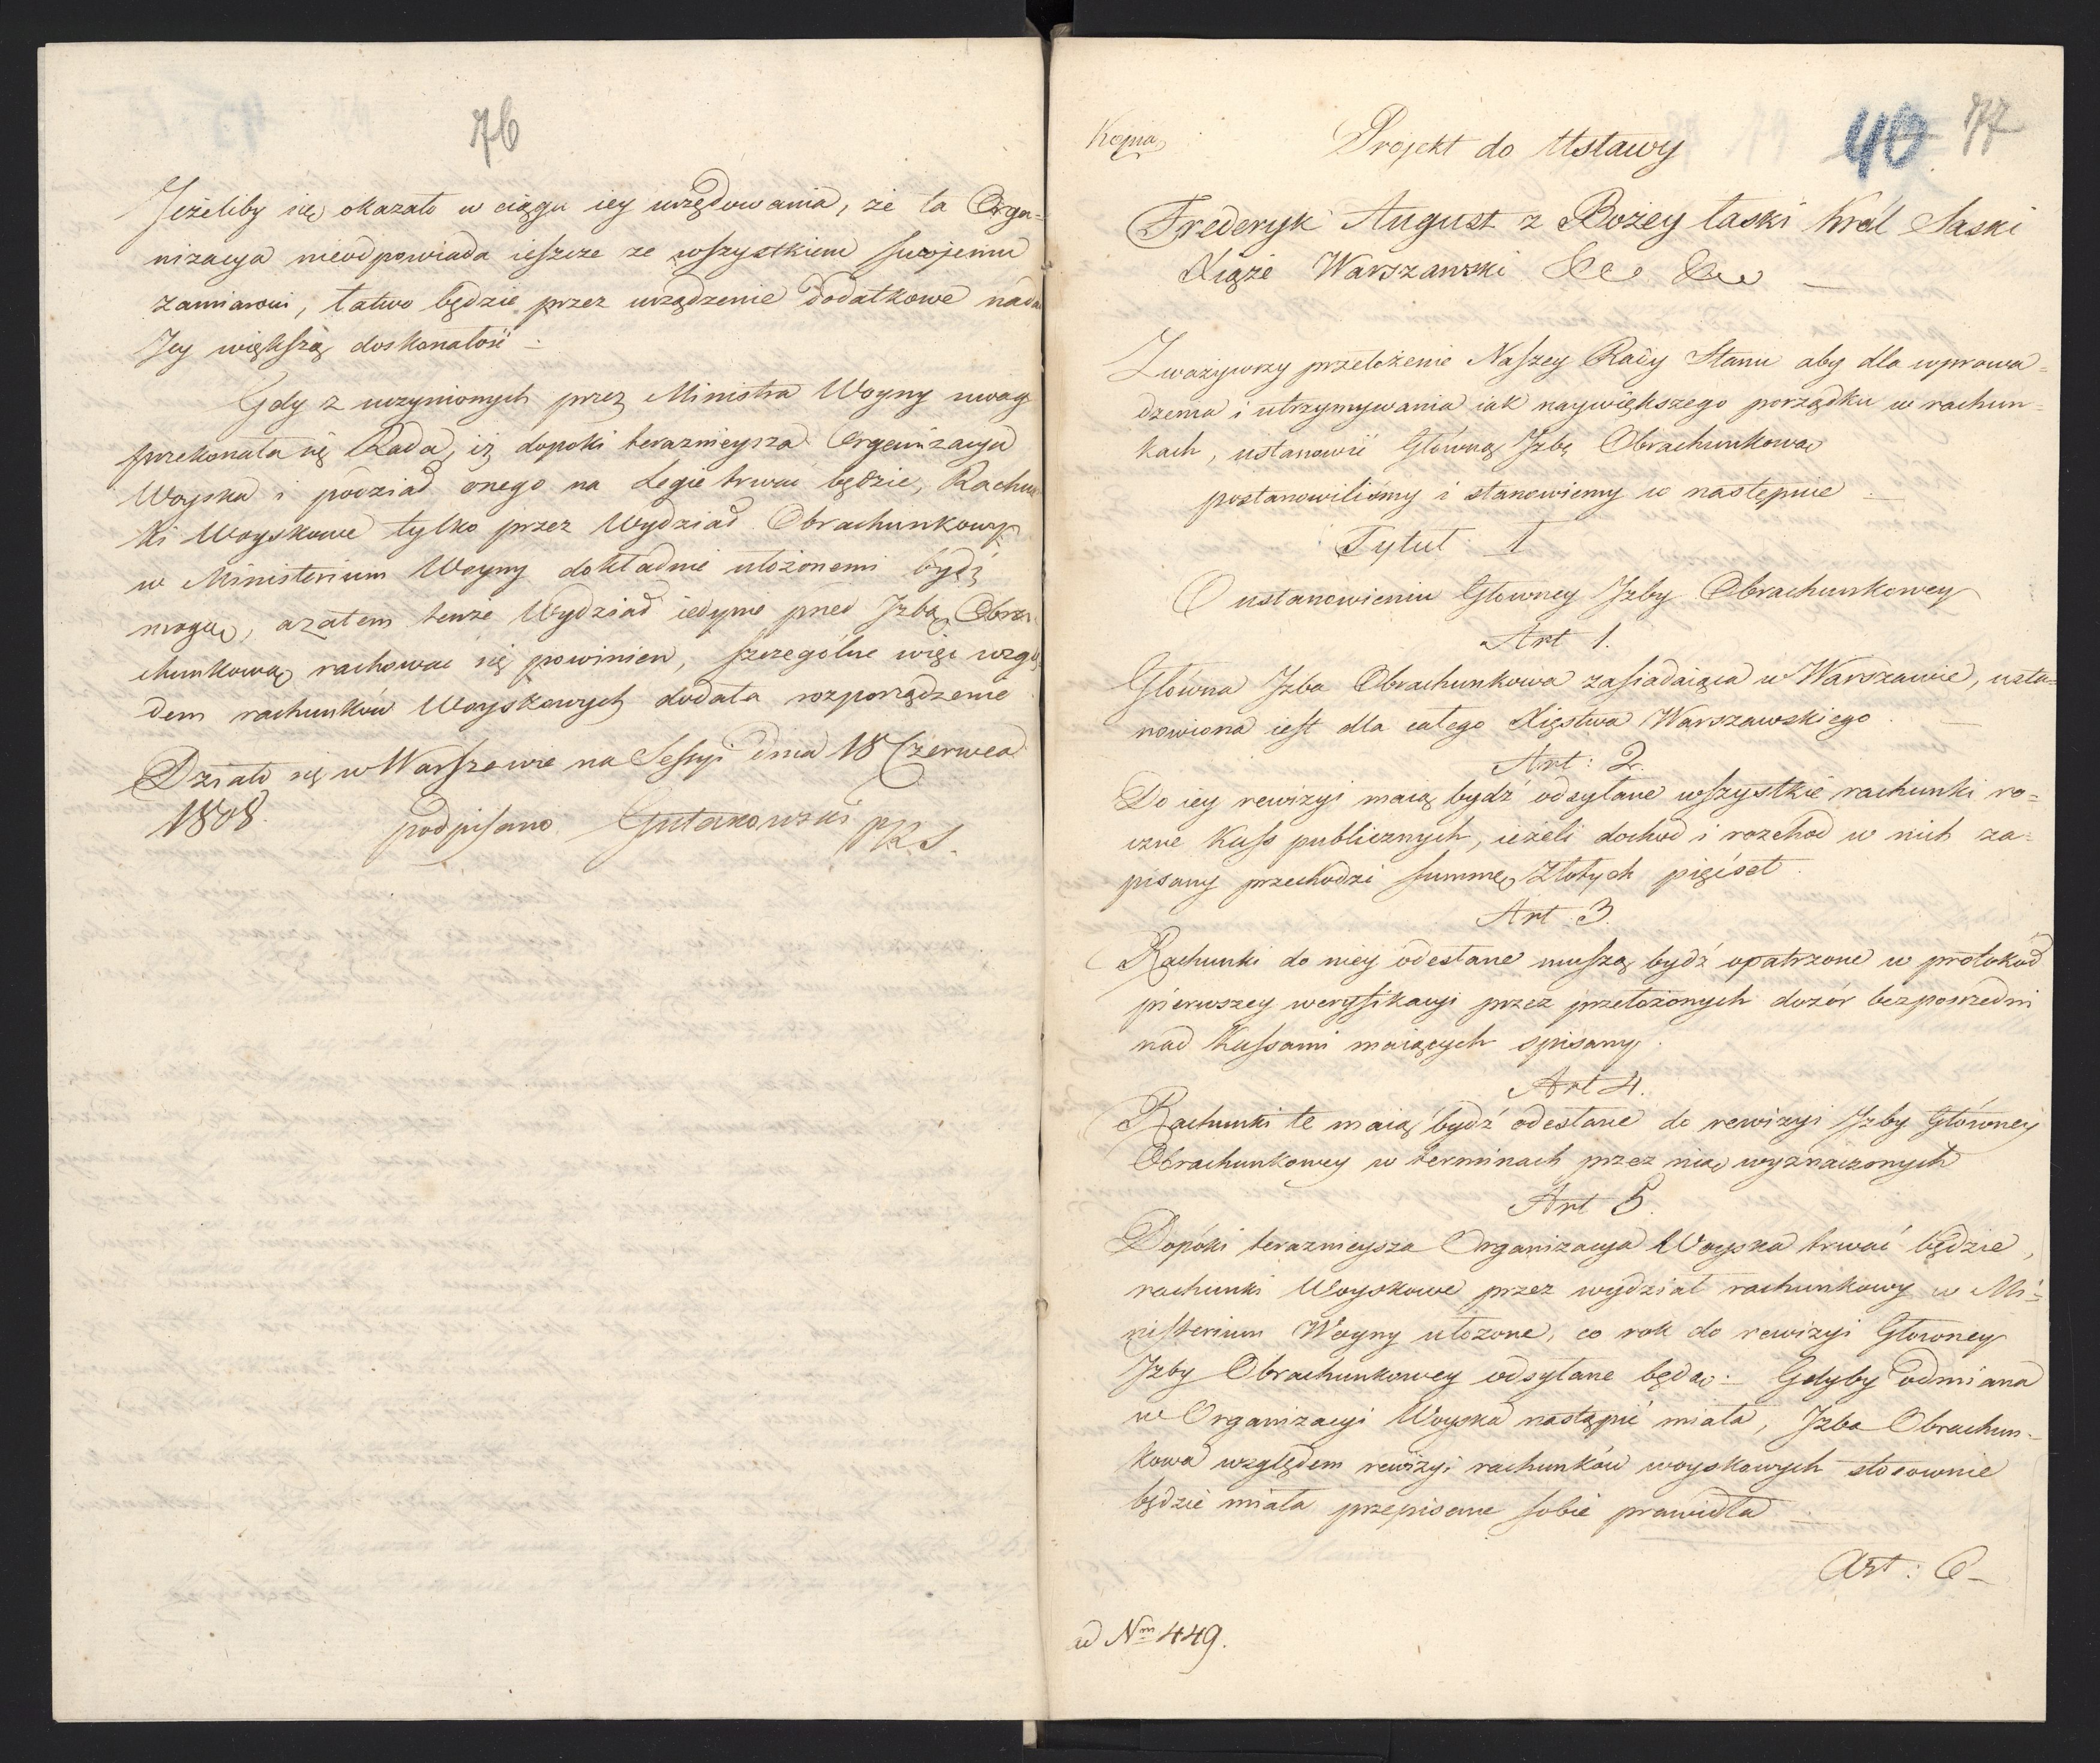 76
Jeżeliby się okazało w ciągu iey urzędowania, że ta Orga-
nizacya nieodpowiada ieszcze ze wszystkiem swojemu
zamiarowi, łatwo będzie przez urządzenie dodatkowe nada
Jey większą doskonałość -
Gdy z uczynionych przez Ministra Woyny uwag
przekonała się Rada, iż dopoki teraznieysza Organizacya
Woyska i podział onego na Legie trwać będzie, Rachun
ki Woyskowe tylko przez Wydział Obrachunkowy
w Ministerium Woyny dokładnie ułożonemi bydź
mogą, azatem tenże Wydział iedynie przed Izbą Obra-
chunkową rachować się powinien, szczególne więc wzglę
dem rachunków Woyskowych dodała rozporządzenie
Działo się w Warszawie na Sessyi dnia 18 Czerwca
1808. podpisano Gutakowski P.R.S.
Kopia
Projekt do Ustawy
40 77
Frederyk August z Bożey łaski Król Saski
Xiąże Warszawski &c &c -
Zważywszy przełożenie Naszey Rady Stanu aby dla wprowa=
dzenia i utrzymywania iak naywiększego porządku w rachun=
kach, ustanowić Główną Izbę Obrachunkową
postanowiliśmy i stanowiemy co następuie -
Tytuł I
O ustanowieniu Głowney Izby Obrachunkowey
Art 1.
Głowna Izba Obrachunkowa zasiadaiąca w Warszawie, usta=
nowiona iest dla całego Xięstwa Warszawskiego. -
Art: 2.
Do iey rewizyi maią bydź odsyłane wszystkie rachunki ro=
czne Kass publicznych, ieżeli dochod i rozchod w nich za=
pisany przechodzi summę Złotych pięćset.
Art 3.
Rachunki do niey odesłane muszą bydź opatrzone w protokół
pierwszey weryfikacyi przez przełożonych dozór bezpośredni
nad Kassami maiących spisany.
Art 4.
Rachunki te maią bydź odesłane do rewizyi Izby Główney
Obrachunkowey w terminach przez nią wyznaczonych
Art 5.
Dopóki teraznieysza Organizacya Woyska trwać będzie,
rachunki Woyskowe przez wydział rachunkowy w Mi=
nisterium Woyny ułożone, co rok do rewizyi Głowney
Izby Obrachunkowey odsyłane będą:- Gdyby odmiana
w Organizacyi Woyska nastąpić miała, Izba Obrachun-
kowa względem rewizyi rachunków woyskowych stosownie
będzie miała przepisane sobie prawidła -
Art: 6-
ad Nm 449.